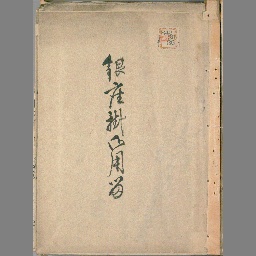 銀座掛御用留